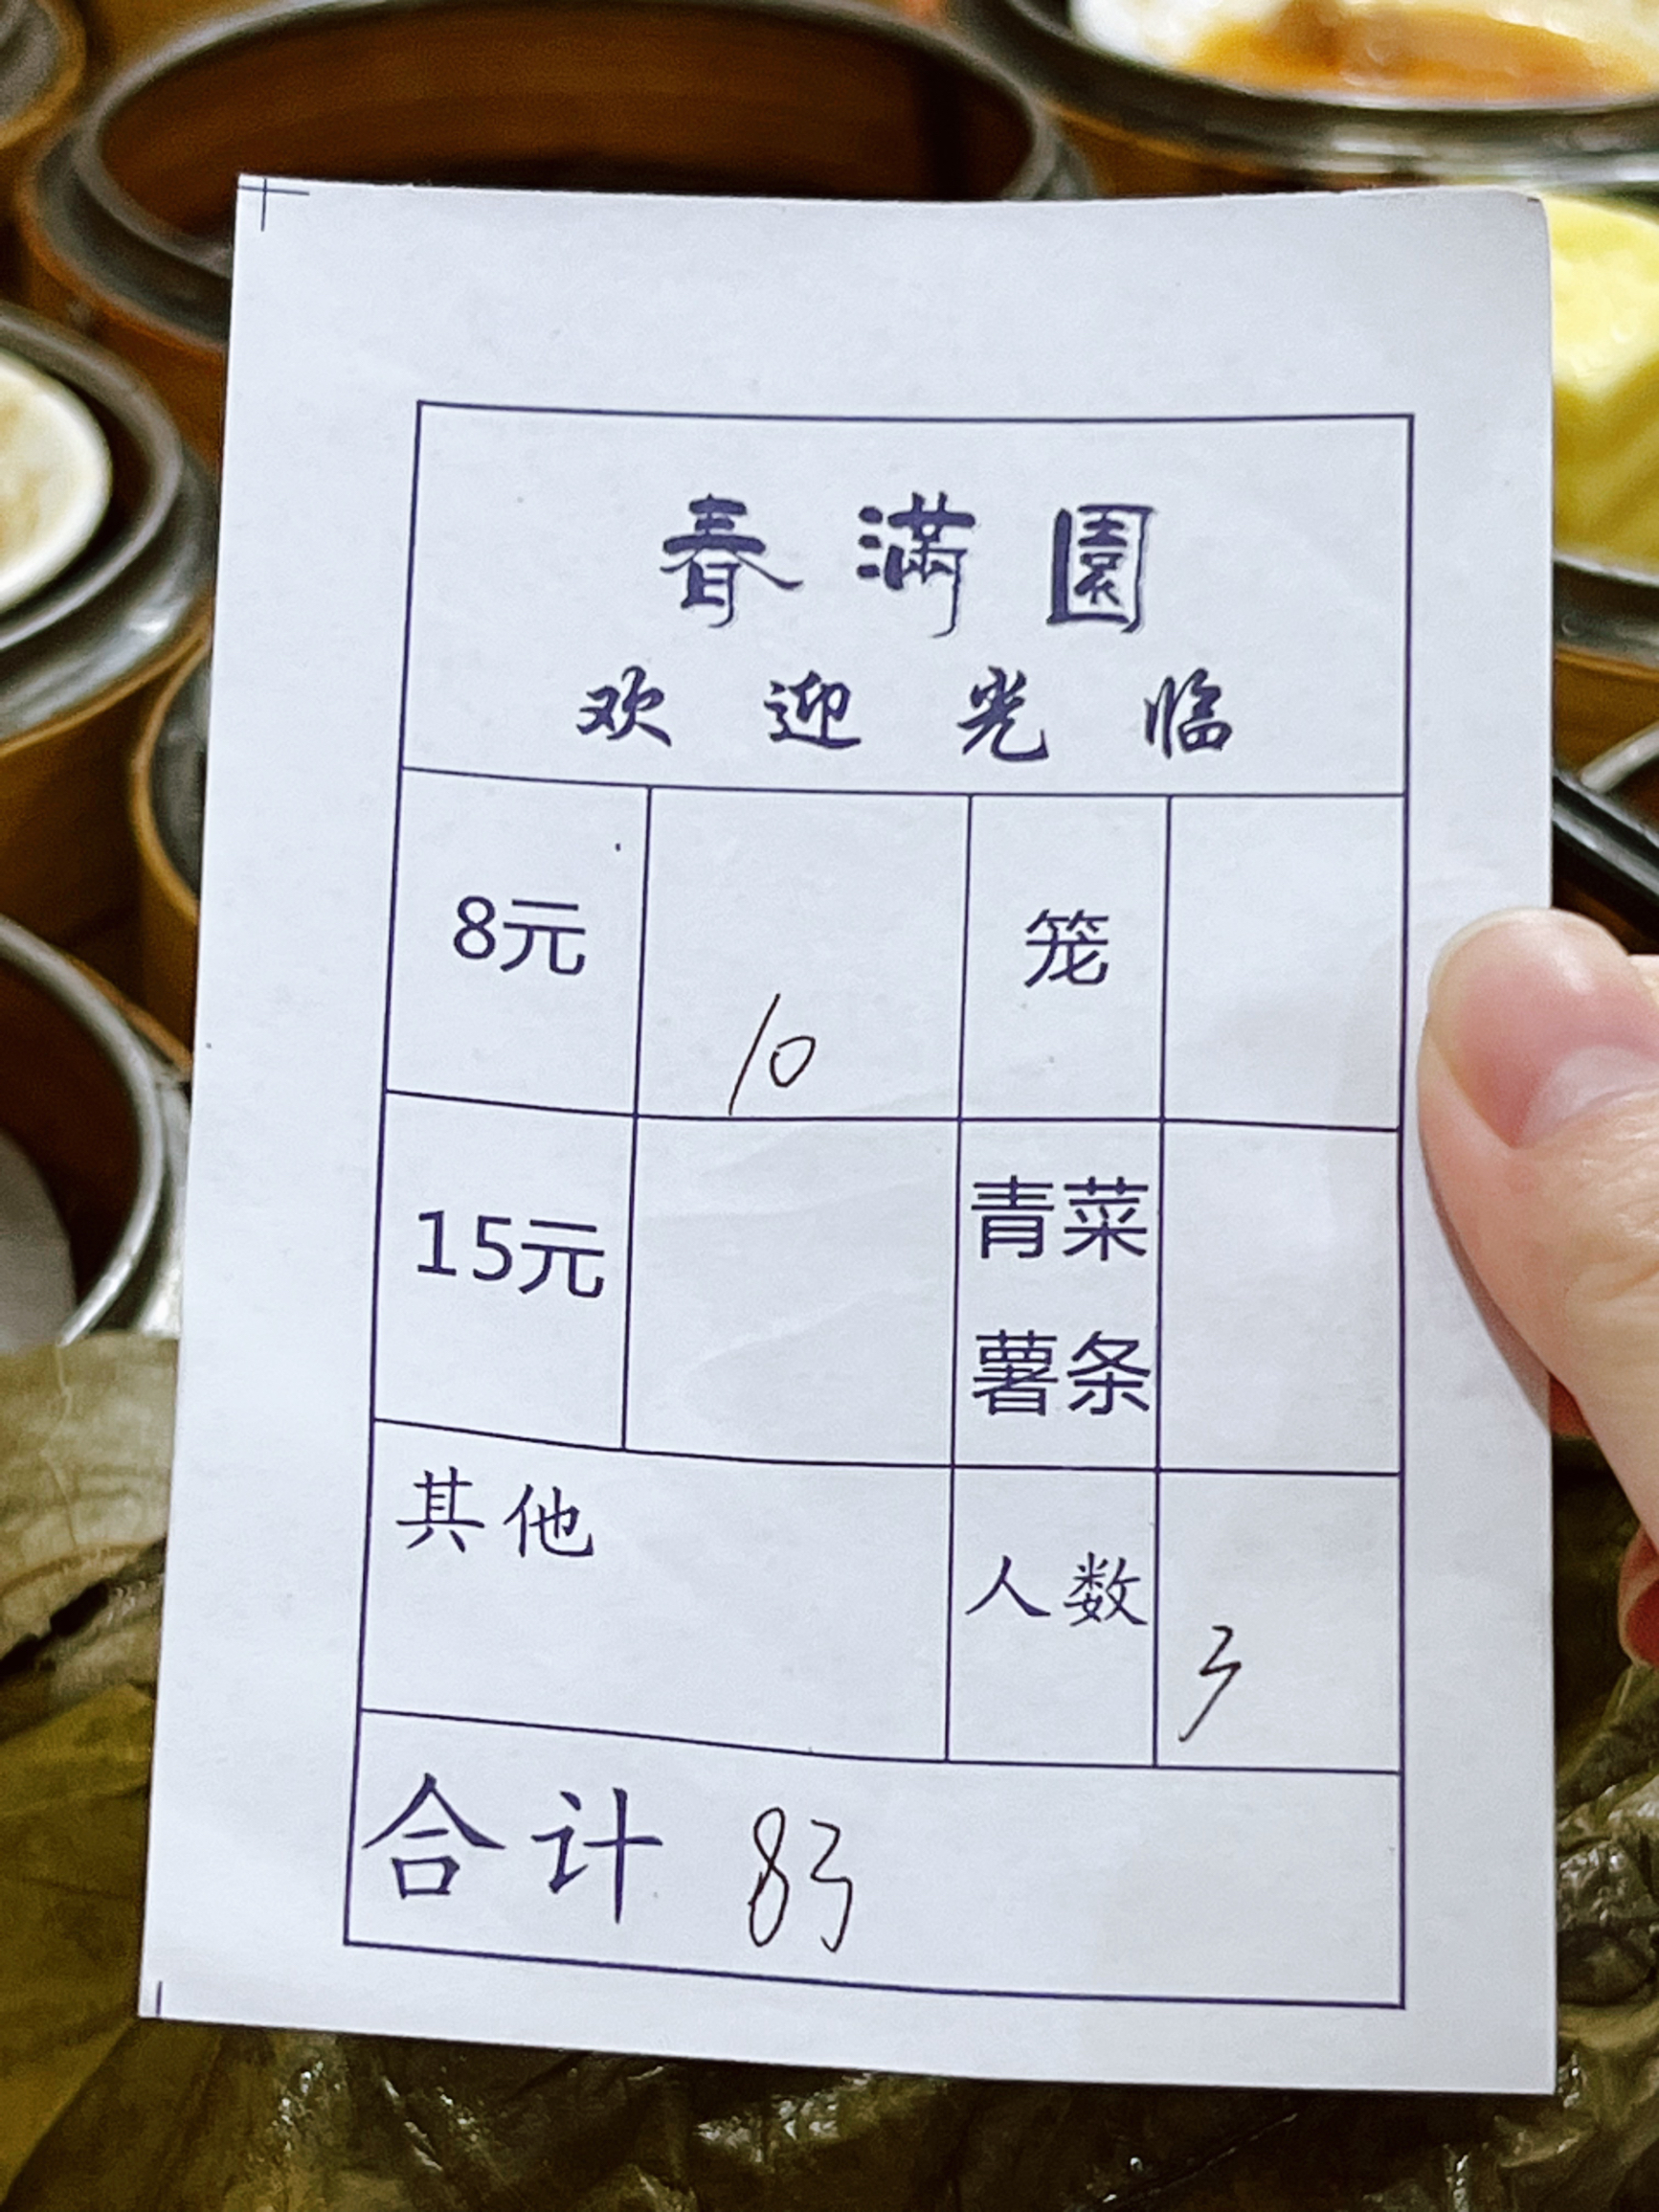 春滿園
欢迎光临
8元 10 笼
15元 青菜
薯条
其他 人数 3
合计 83